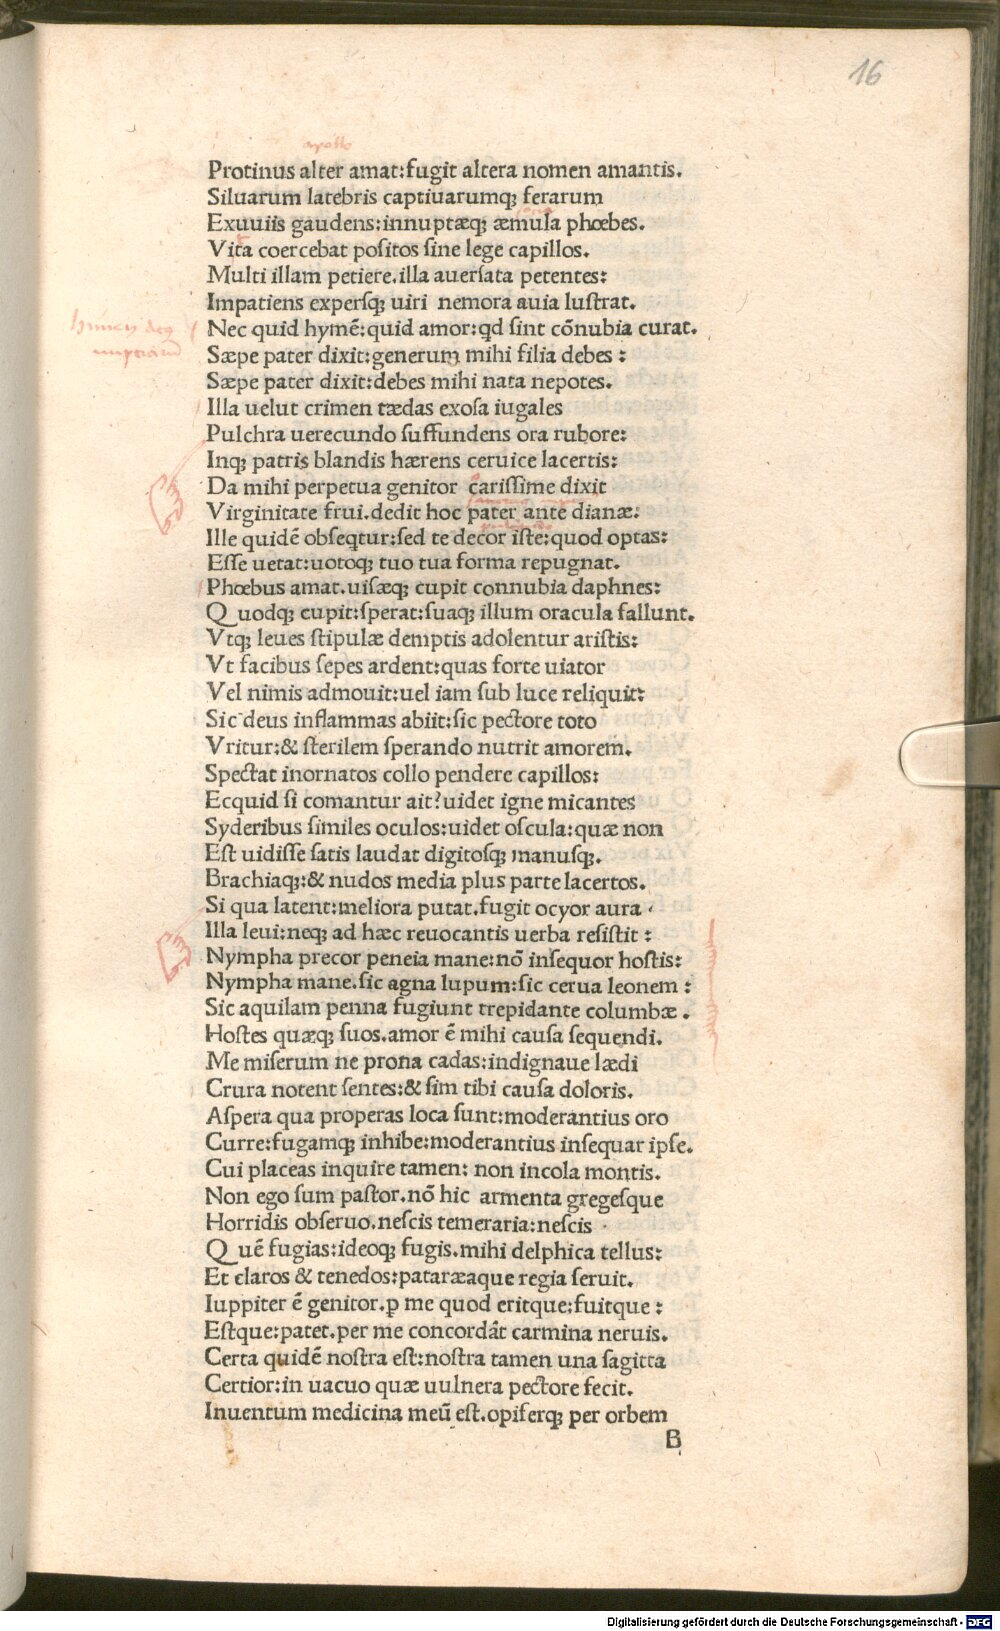 16
apollo
Protinus alter amat:fugit altera nomen amantis.
Siluarum latebris captiuarumq; ferarum
Exuuiis gaudens:innuptæq; æmula phœbes.
Vita coercebat poſitos ſine lege capillos.
Multi illam petiere.illa auerſata petentes:
Impatiens experſq; uiri nemora auia luſtrat.
Nec quid hymē:quid amor:qd ſint cōnubia curat.
Sæpe pater dixit:generum mihi filia debes :
Sæpe pater dixit:debes mihi nata nepotes.
Illa uelut crimen tædas exoſa iugales
Pulchra uerecundo ſuffundens ora rubore:
Inq; patris blandis hærens ceruice lacertis:
Da mihi perpetua genitor cariſſime dixit
Virginitate frui.dedit hoc pater ante dianæ:
Ille quidē obſeqtur:ſed te decor iſte:quod optas:
Eſſe uetat:uotoq; tuo tua forma repugnat.
Phœbus amat.uiſæq; cupit connubia daphnes:
Quodq; cupit:ſperat:ſuaq; illum oracula fallunt.
Vtq; leues ſtipulæ demptis adolentur ariſtis:
Vt facibus ſepes ardent:quas forte uiator
Vel nimis admouit:uel iam ſub luce reliquit:
Sic deus inflammas abiit:ſic pectore toto
Vritur:& ſterilem ſperando nutrit amorem.
Spectat inornatos collo pendere capillos:
Ecquid ſi comantur ait?uidet igne micantes
Syderibus ſimiles oculos:uidet oſcula:quæ non
Eſt uidiſſe ſatis laudat digitoſq; manuſq;.
Brachiaq;:& nudos media plus parte lacertos.
Si qua latent:meliora putat.fugit ocyor aura
Illa leui:neq; ad hæc reuocantis uerba reſiſtit :
Nympha precor peneia mane:nō inſequor hoſtis:
Nympha mane.ſic agna lupum:ſic cerua leonem :
Sic aquilam penna fugiunt trepidante columbæ .
Hoſtes quæq; ſuos.amor ē mihi cauſa ſequendi.
Me miſerum ne prona cadas:indignaue lædi
Crura notent ſentes:& ſim tibi cauſa doloris.
Aſpera qua properas loca ſunt:moderantius oro
Curre:fugamq; inhibe:moderantius inſequar ipſe.
Cui placeas inquire tamen: non incola montis.
Non ego ſum paſtor.nō hic armenta gregeſque
Horridis obſeruo.neſcis temeraria:neſcis
Quē fugias:ideoq; fugis.mihi delphica tellus:
Et claros & tenedos:pataræaque regia ſeruit.
Iuppiter ē genitor.ꝑ me quod eritque:fuitque :
Eſtque:patet.per me concordāt carmina neruis.
Certa quidē noſtra eſt:noſtra tamen una ſagitta
Certior:in uacuo quæ uulnera pectore fecit.
Inuentum medicina meū eſt.opiferq; per orbem
B
Digitalisierung gefördert durch die Deutsche Forschungsgemeinschaft - DFG